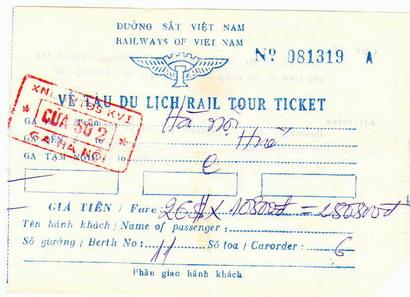 ĐƯỜNG SẮT VIỆT NAM
RAILWAYS OF VIET NAM
Nº 081319 A
VÉ TÀU DU LỊCH/RAIL TOUR TICKET
CỬA SỐ 2
GA HÀ NỘI
GA Hà Nội
GA ĐẾN Huế
GA TẠM NG
GIÁ TIỀN / Fare 26$ x 10800đ = 280.800đ
Tên hành khách / Name of passenger :
Số giường / Berth No : 11 Số toa / Carorder : 6
Phần giao hành khách